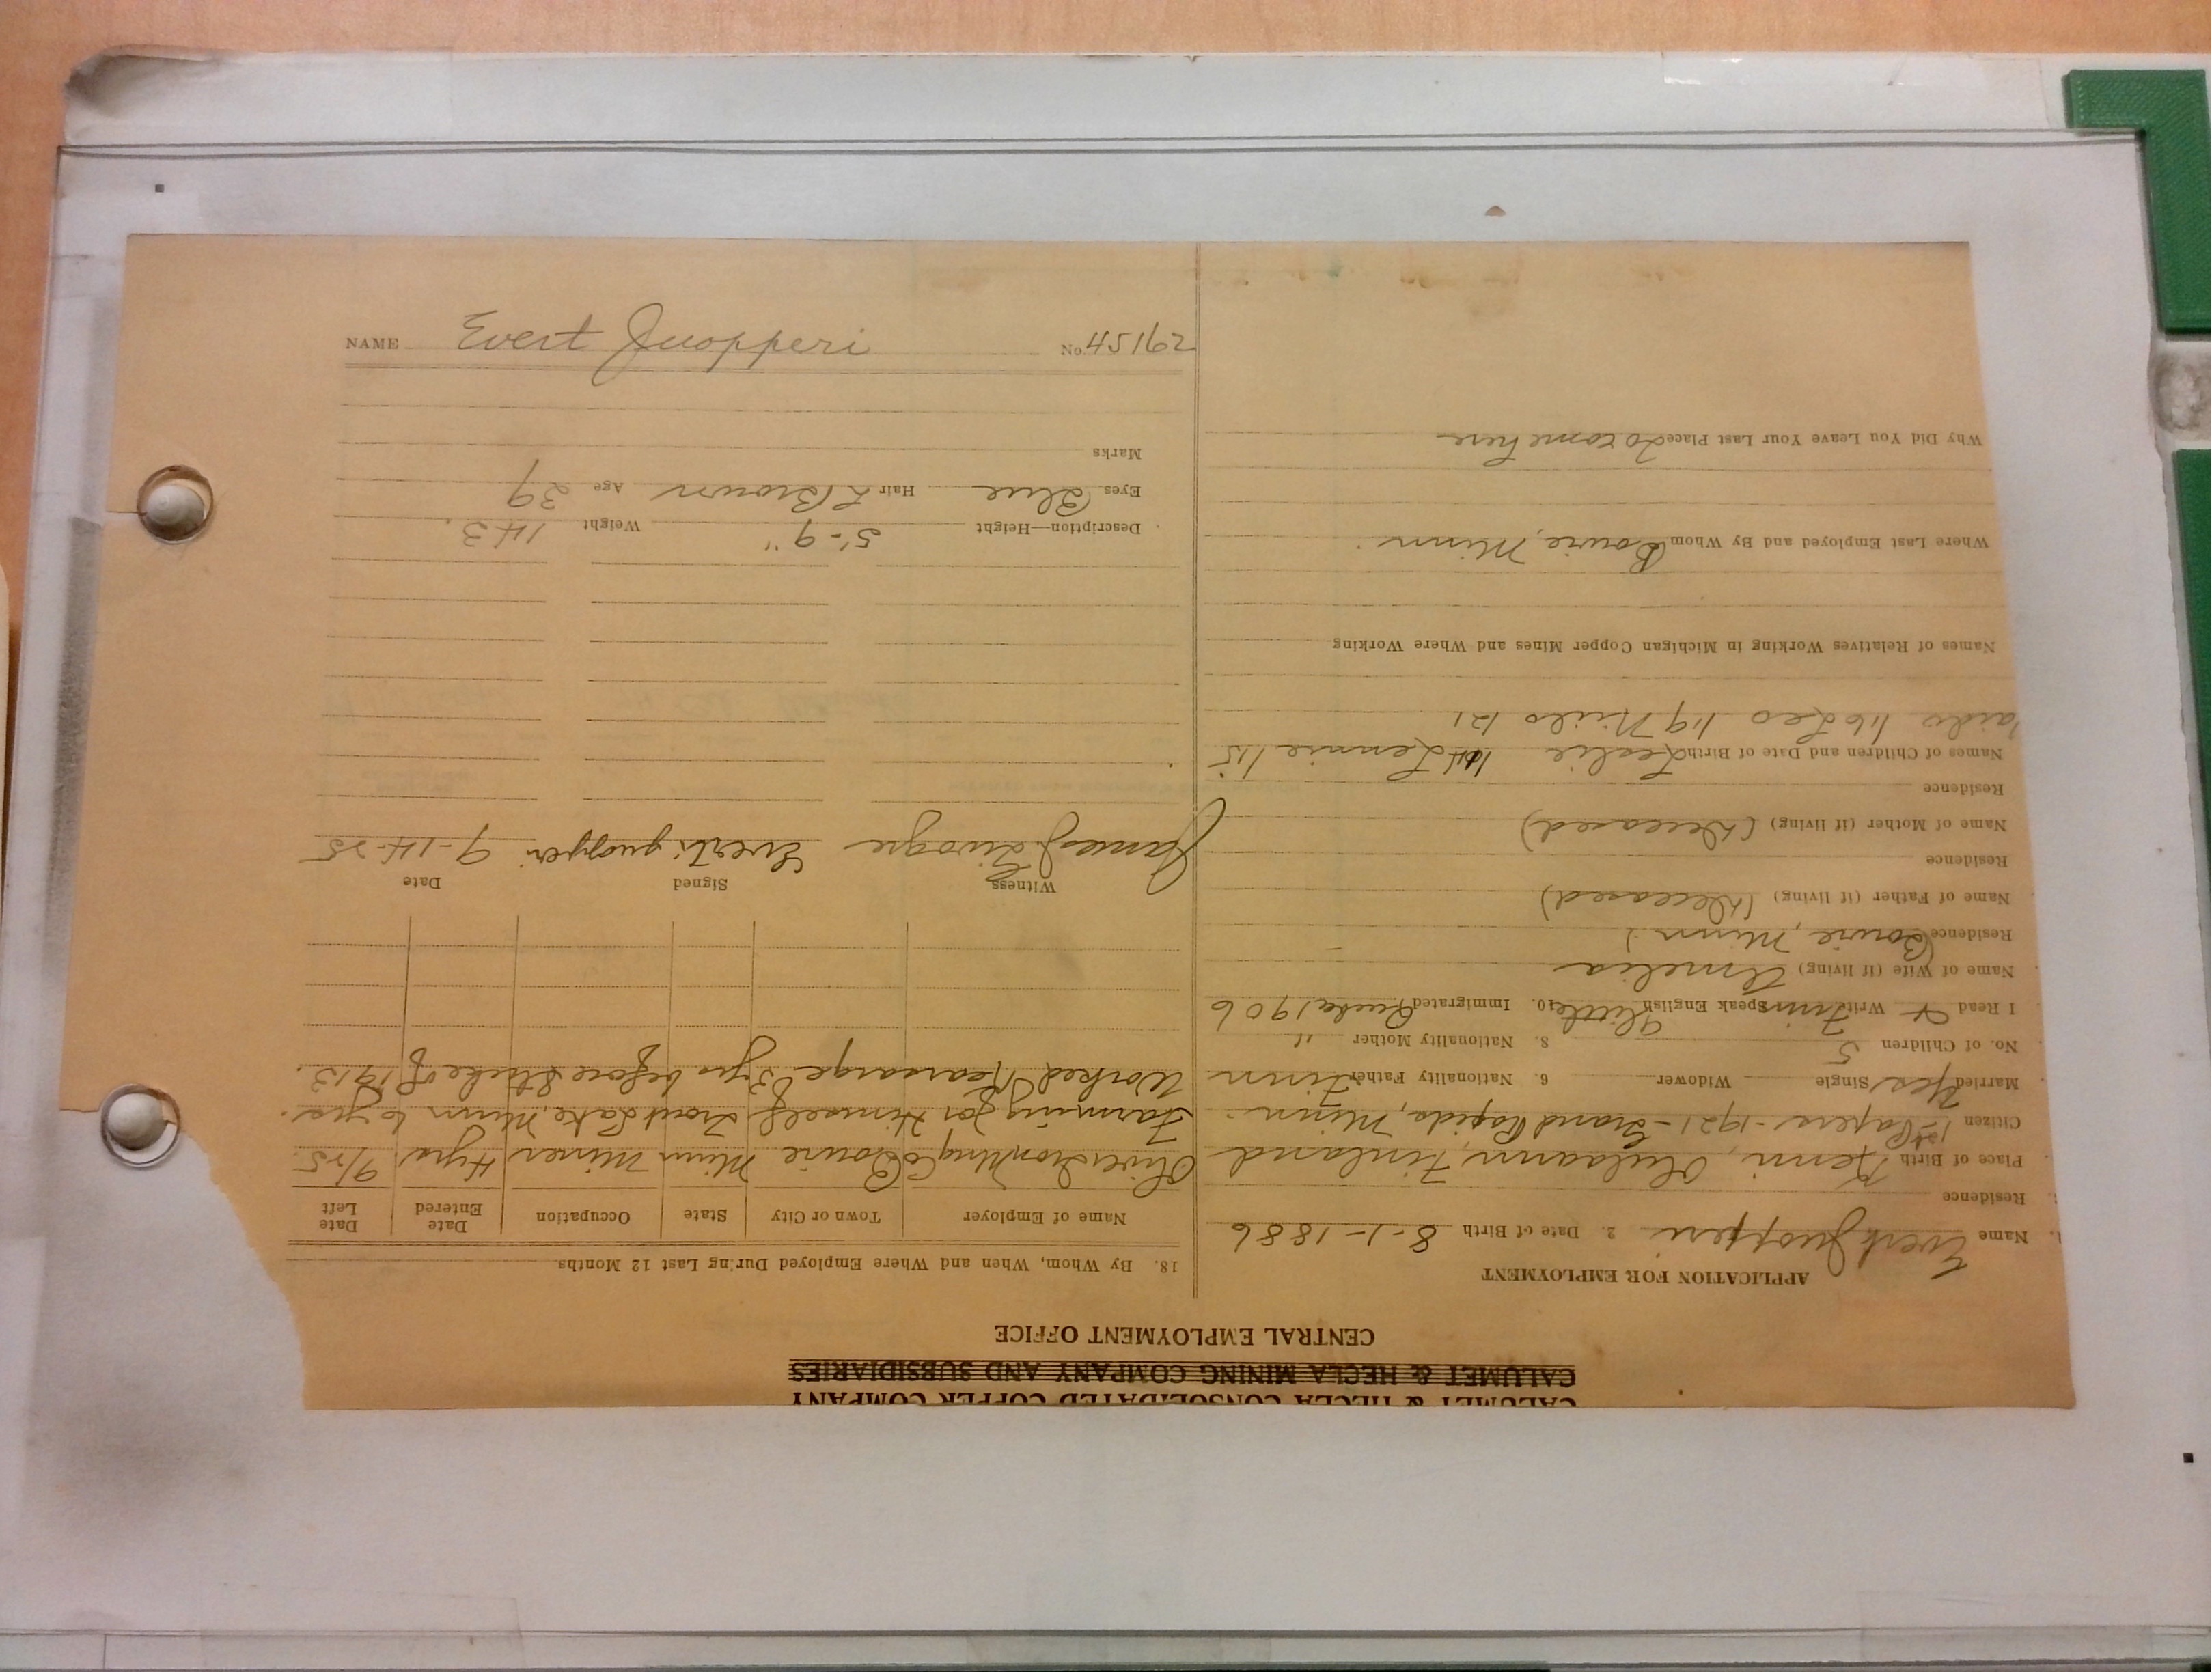 CALUMET & HECLA CONSOLIDATED COPPER COMPANY
CALUMET & HECLA MINING COMPANY AND SUBSIDIARIES
CENTRAL EMPLOYMENT OFFICE
APPLICATION FOR EMPLOYMENT
Name Evert Juopperi 2. Date of Birth 8-1-1886
Residence
Place of Birth Kemi, Finland
Citizen 1st Papers - 1921 - Grand Rapids, Minn.
Married Yes Single Widower 6. Nationality Father Finn
No. of Children 5 8. Nationality Mother "
I Read & Write Finn Speak English little 10. Immigrated 1906
Name of Wife (if living) Amelia
Residence Bovie, Minn.
Name of Father (if living) (Deceased)
Residence
Name of Mother (if living) (Deceased)
Residence
Names of Children and Date of Birth Leslie Lennie 1/5
1/6 Leo 1/9 Niilo 121
Names of Relatives Working in Michigan Copper Mines and Where Working
Where Last Employed and By Whom Bovie, Minn.
Why Did You Leave Your Last Place To come here
18. By Whom, When and Where Employed During Last 12 Months
Name of Employer Town or City State Occupation Date Entered Date Left
Oliver Iron Mng Co Bovie Minn Miner 4 yrs 9/25
Farming for Himself Trout Lake, Minn 6 yrs.
Worked Kearsarge 3 yrs before Strike of 1913.
Witness Signed Date
James J. Everti juopperi 9-14-25
Description—Height 5'-9" Weight 143.
Eyes Blue Hair L Brown Age 39
Marks
NAME Evert Juopperi No. 45162